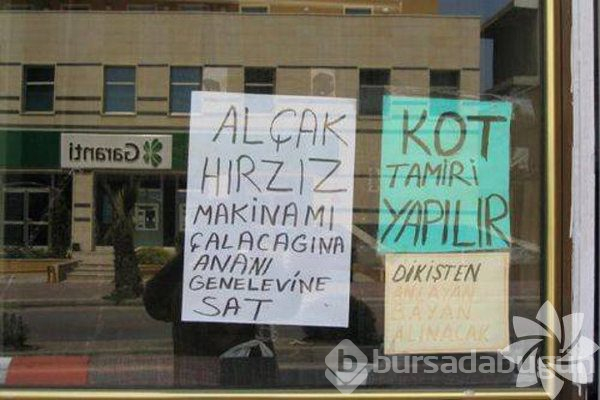 Garanti
ALÇAK
HIRZIZ
MAKİNAMI
ÇALACAGINA
ANANI
GENELEVİNE
SAT
KOT
TAMİRİ
YAPILIR
DİKİŞTEN
ANLAYAN
BAYAN
ALINACAK
bursadabugün